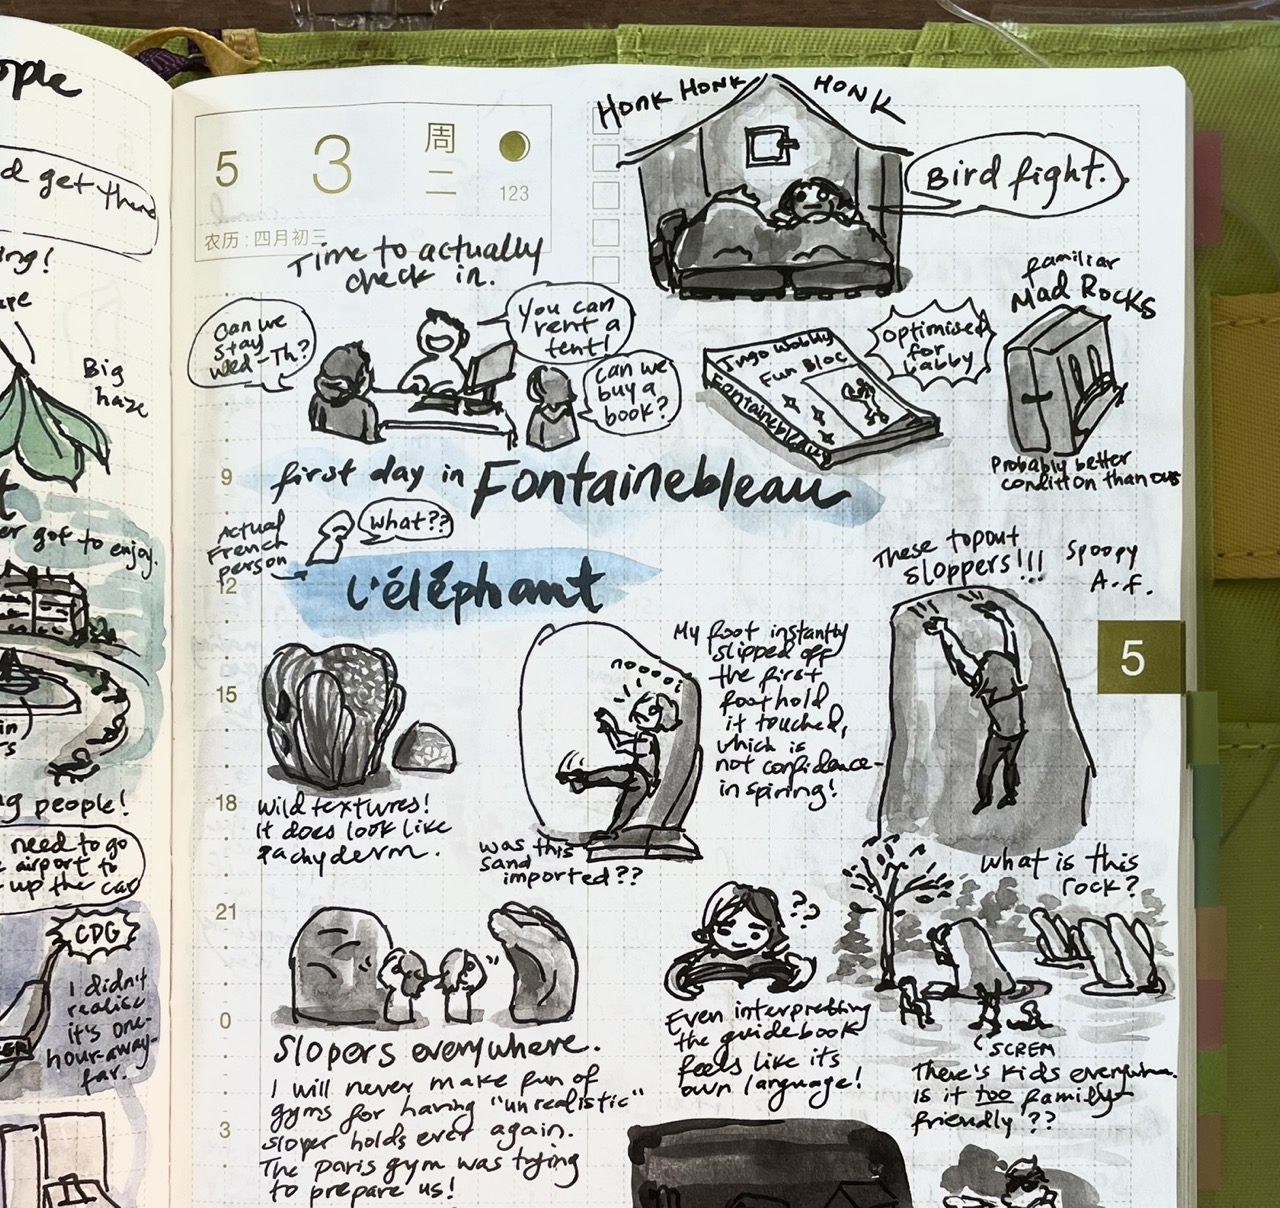 ople
d get there
ing!
Big
haze
er got to enjoy.
in
ng people!
need to go
airport to
up the car
CDG
I didn't
realise
it's one-
hour-away-
far.
5
3
周
二
123
农历:四月初三
HONK HONK HONK
Bird fight.
Time to actually
check in.
Can we
stay
Wed-Th?
You can
rent a
tent!
Can we
buy a
book?
Ingo Wobbly
Fun Bloc
Fontainebleau
Optimised
for
Gabby
familiar
Mad Rocks
Probably better
condition than ours
9
first day in Fontainebleau
Actual
French
person
what??
12
l'éléphant
These topout
sloppers!!!
Spoopy
A.f.
5
My foot instantly
slipped off
the first
foothold
it touched,
which is
not confidence-
inspiring!
noooo
15
18
Wild textures!
It does look like
pachyderm.
was this
sand
imported??
What is this
rock?
21
??
0
Slopers everywhere.
I will never make fun of
gyms for having "unrealistic"
sloper holds ever again.
The Paris gym was trying
to prepare us!
3
Even interpretting
the guidebook
feels like its
own language!
SCREM
There's kids everywhere.
Is it too family-
friendly??